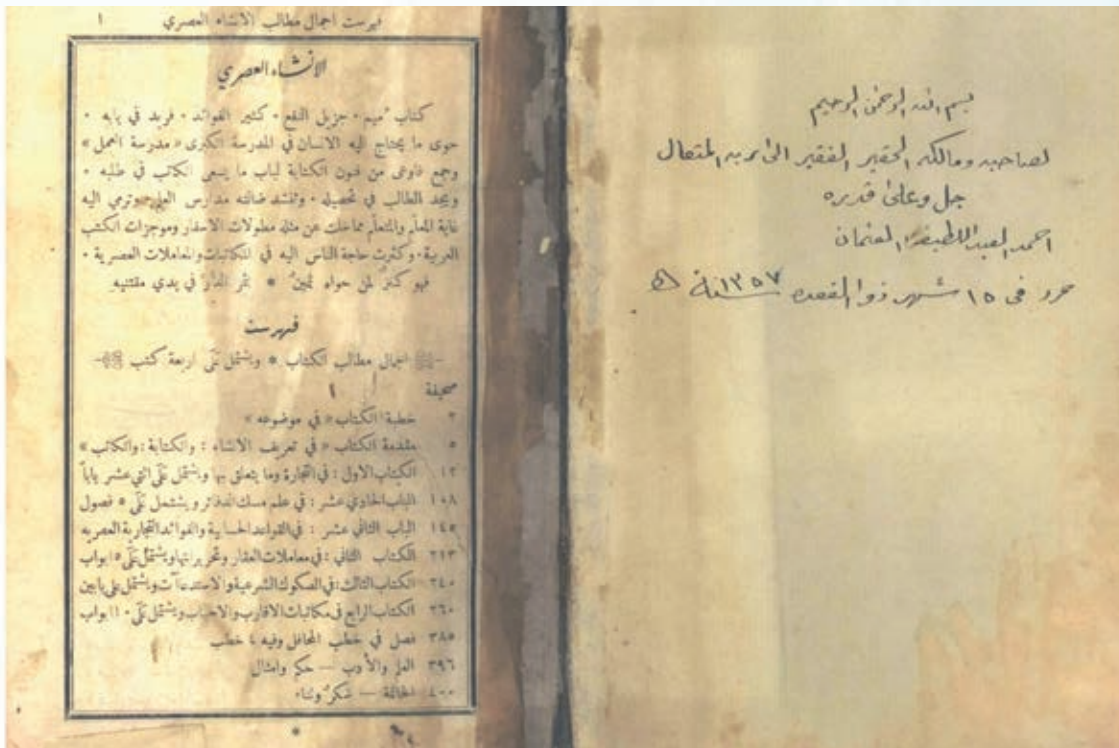 بسم الله الرحمن الرحيم
لصاحبه ومالكه الحقير الفقير الى ربه المتعال
جل وعلى قدره
احمد العبد اللطيف العثمان
حرر في ١٥ شهر ذو القعده سنة ١٣٥٧ ه
فهرست اجمال مطالب الانشاء العصري ١
الانشاء العصري
كتاب مهم ٠ جزيل النفع ٠ كثير الفوائد ٠ فريد في بابه ٠
حوى ما يحتاج اليه الانسان في المدرسة الكبرى « مدرسة العمل »
وجمع فاوعى من فنون الكتابة لباب ما يسعى الكاتب في طلبه ٠
ويجد الطالب في تحصيله ٠ وتنشد ضالته مدارس العلم ٠ وترمي اليه
غاية المعلم والمتعلم مما خلت عن مثله مطولات الاسفار وموجزات الكتب
العربية ٠ وكثرت حاجة الناس اليه في المكاتبات والمعاملات العصرية ٠
فهو كنزٌ لمن حواه ثمينٌ * ثمر الدارّ في يدي مقتنيه
فهرست
اجمال مطالب الكتاب * ويشتمل على اربعة كتب
صحيفة
٢ خطبة الكتاب « في موضوعه »
٥ مقدمة الكتاب « في تعريف الانشاء : والكتابة : والكاتب »
١٢ الكتاب الاول : في التجارة وما يتعلق بها ويشتمل على اثني عشر باباً
١٠٨ الباب الحادي عشر : في علم مسك الدفاتر ويشتمل على ٥ فصول
١٤٥ الباب الثاني عشر : في القواعد الحسابية والفوائد التجارية العصريه
٢١٣ الكتاب الثاني : في معاملات العقار وتحريراتها ويشتمل على ٥ ابواب
٢٤٠ الكتاب الثالث : في الصكوك الشرعية والاستدعاآت ويشتمل على بابين
٢٦٠ الكتاب الرابع في مكاتبات الاقارب والاحباب ويشتمل على ١٠ ابواب
٣٨٥ فصل في خطب المحافل وفيه خطب
٣٩٦ العلم والأدب — حكم وامثال
٤٠٠ الخاتمة — شكرٌ وثناء